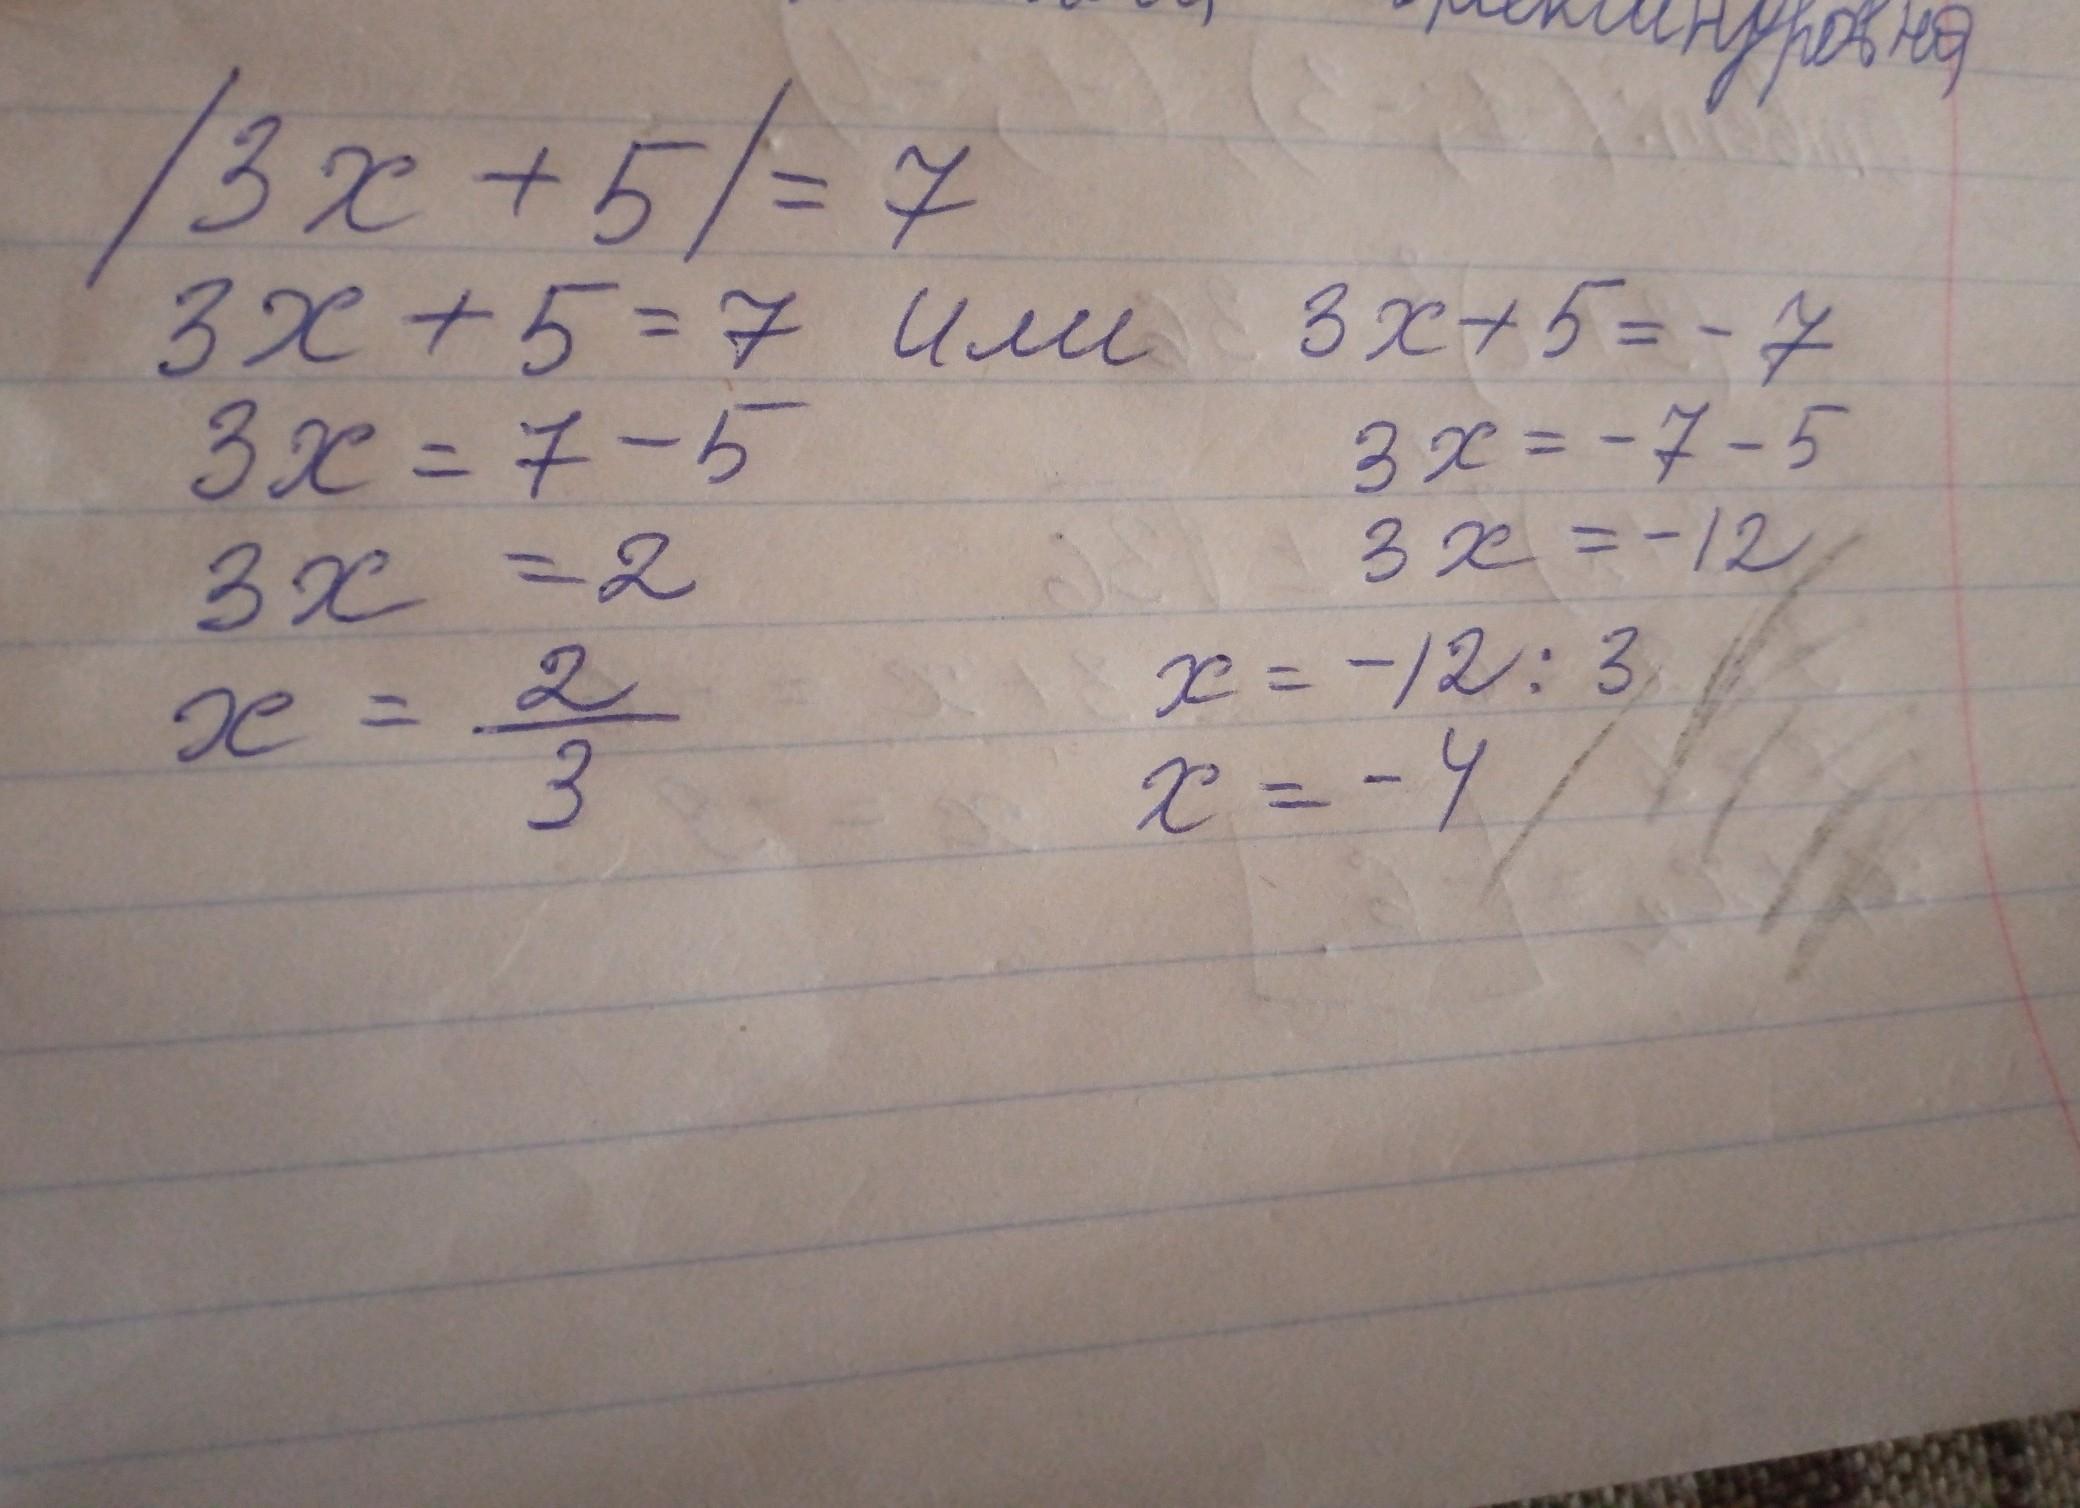 /3x + 5/ = 7
3x + 5 = 7 или 3x + 5 = - 7
3x = 7 - 5 3x = - 7 - 5
3x = 2 3x = - 12
x = 2/3 x = - 12 : 3
x = - 4